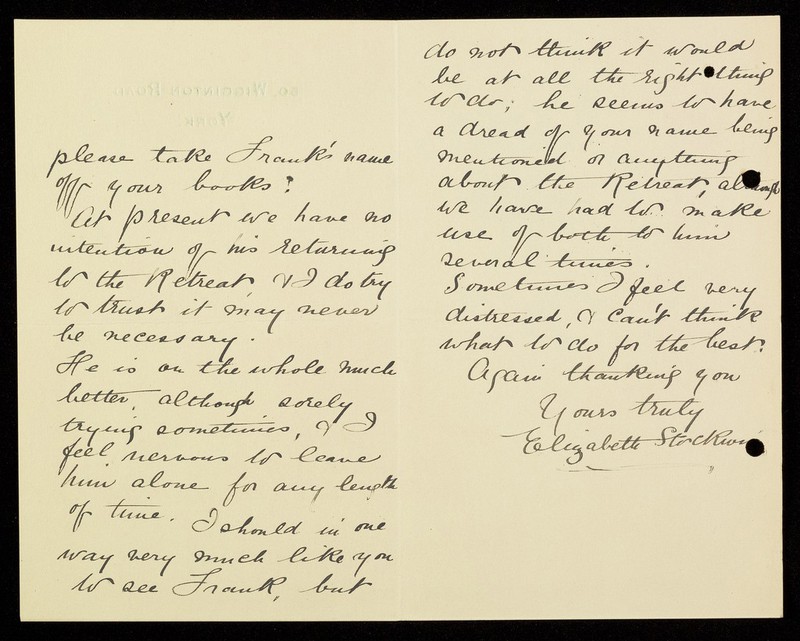 please take Frank's name
off your books?
At present we have no
intention of his returning
to the Retreat, & I do try
to trust it may never
be necessary.
He is on the whole much
better, although sorely
trying sometimes, & I
feel nervous to leave
him alone for any length
of time. I should in one
way very much like you
to see Frank, but
do not think it would
be at all the right thing
to do; he seems to have
a dread of your name being
mentioned or anything
about the Retreat, although
we have had to make
use of both to him
several times.
Sometimes I feel very
distressed, & can't think
what to do for the best.
Again thanking you
Yours truly
Elizabeth